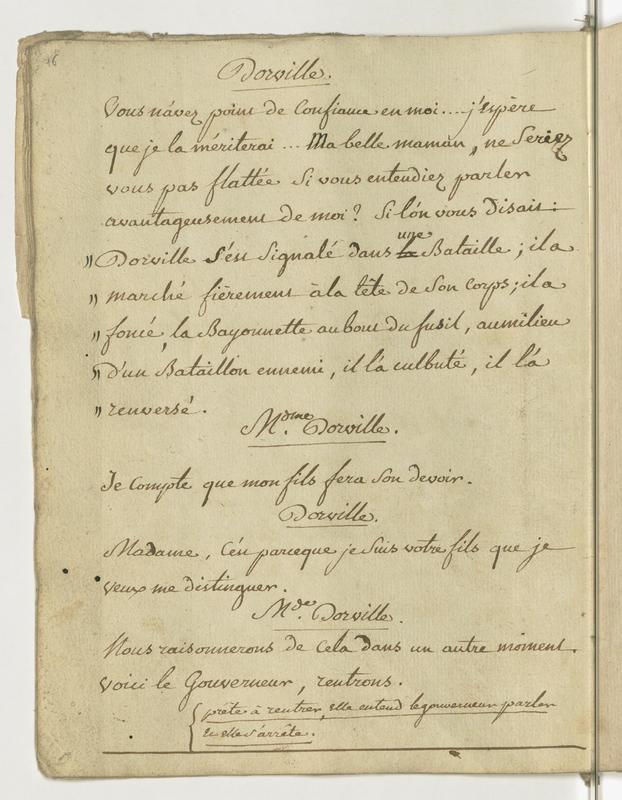 16
Dorville.
Vous n'avez point de Confiance en moi .... j'espère
que je la mériterai ... Ma belle maman, ne Seriez
vous pas flattée Si vous entendiez parler
avantageusement de moi ? Si l'on vous Disait :
" Dorville s'est Signalé dans la une Bataille ; il a
" marché fièrement à la tête de Son Corps ; il a
" foncé, la Bayonnette au bout du fusil, au milieu
" d'un Bataillon ennemi, il l'a culbuté, il l'a
" renversé.
M.dme Dorville.
Je Compte que mon fils fera Son devoir.
Dorville.
Madame, C'est parceque je Suis votre fils que je
veux me distinguer.
M.de Dorville.
Nous raisonnerons de Cela dans un autre moment.
Voici le Gouverneur, rentrons.
{ prête à rentrer, elle entend le gouverneur parler
et elle s'arrête.